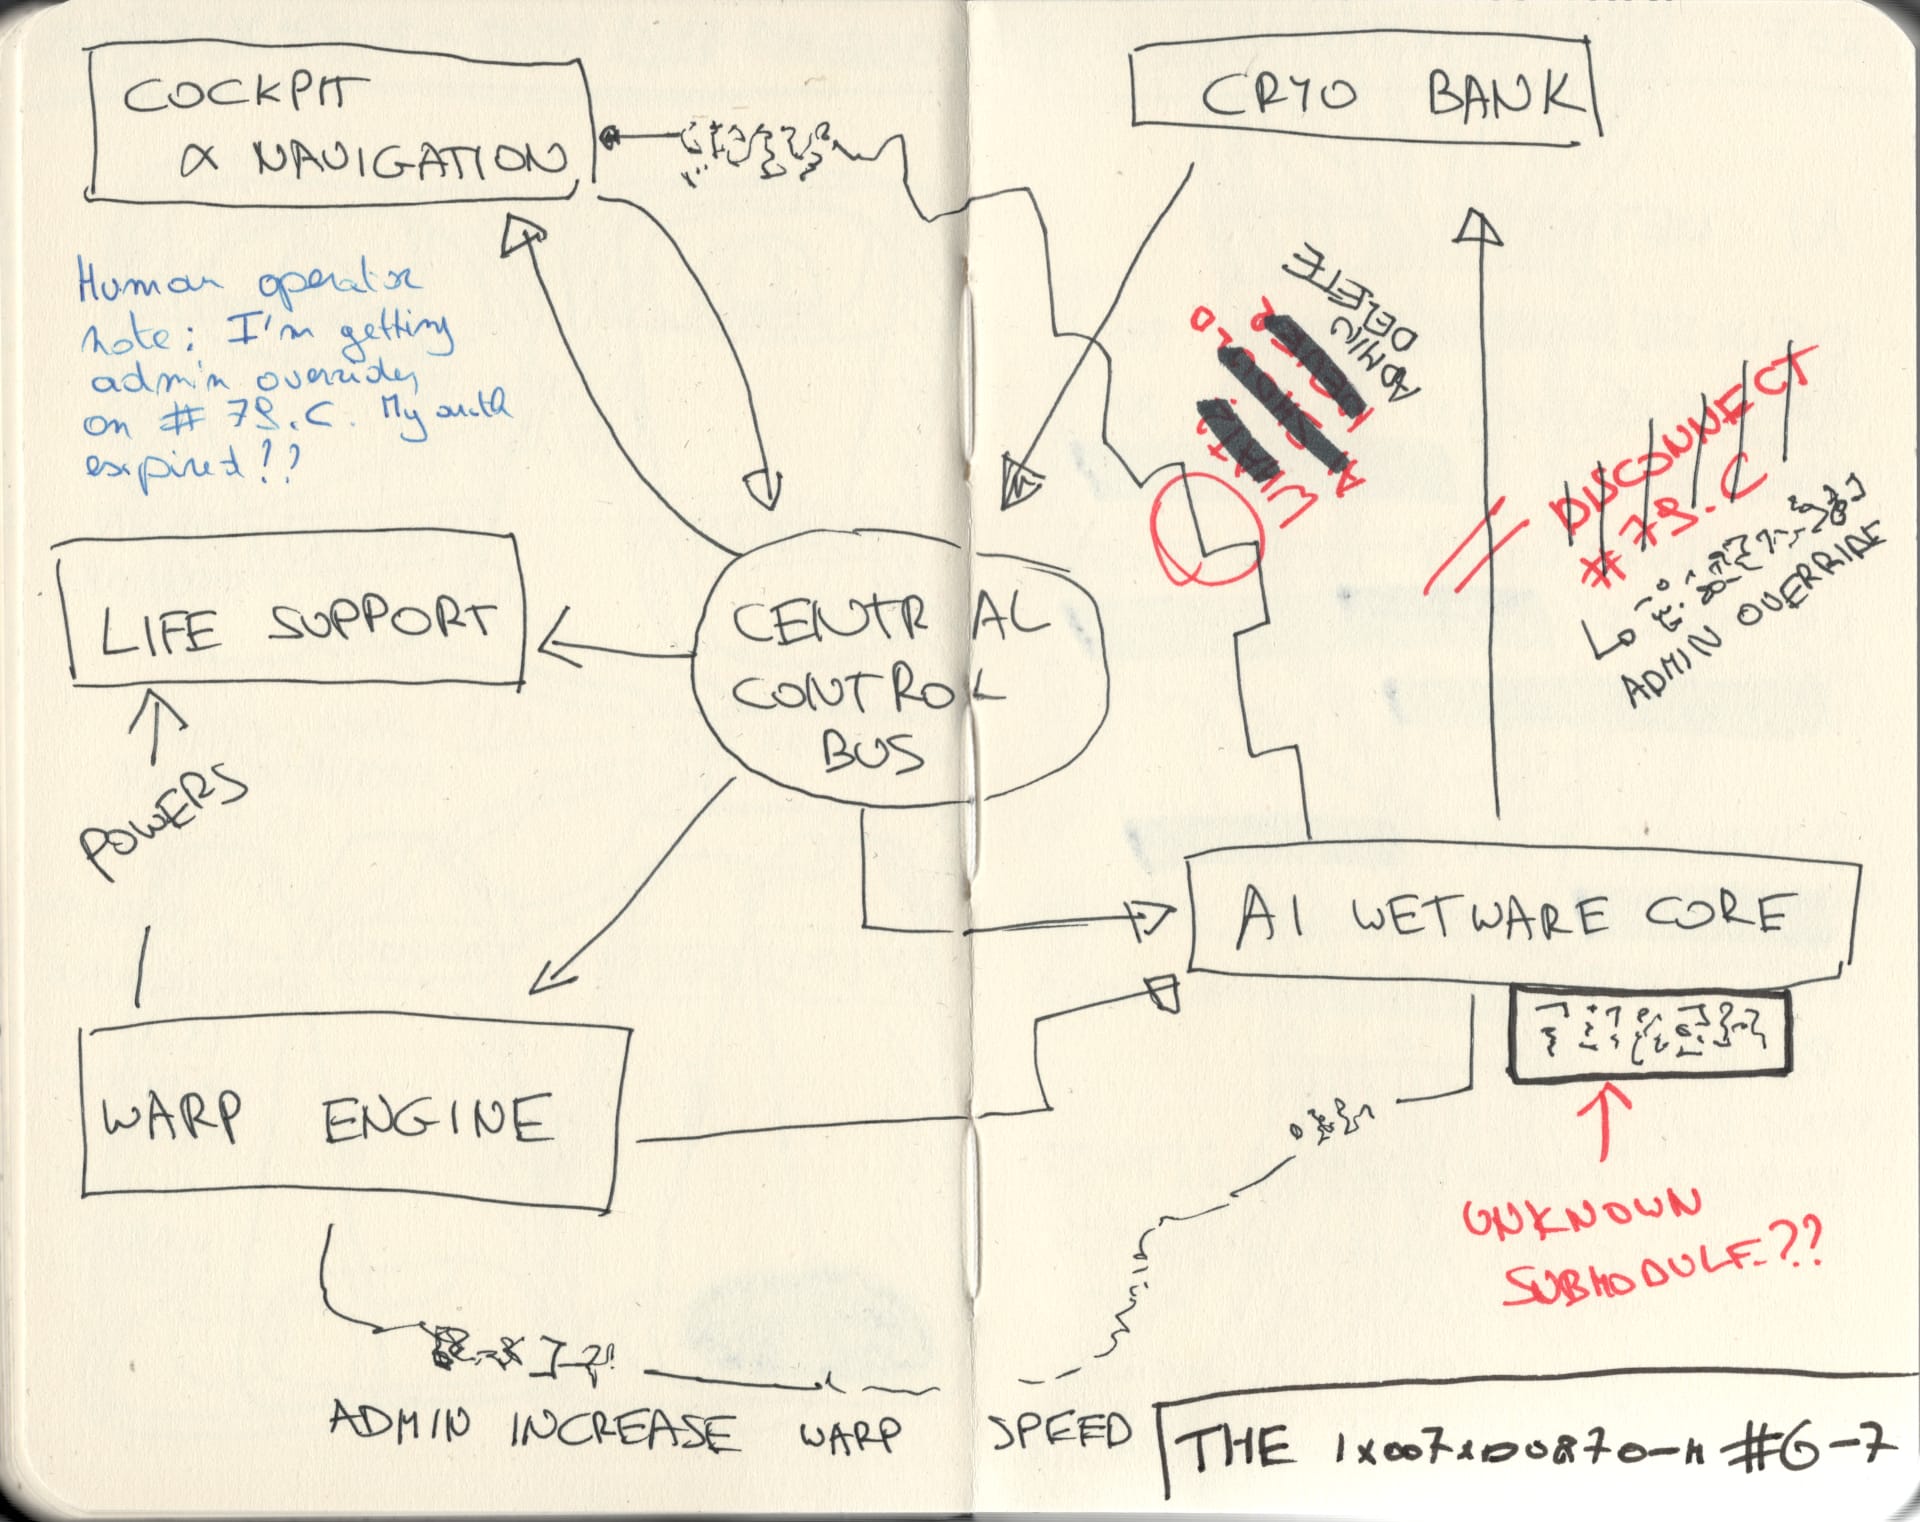 COCKPIT
& NAVIGATION
CRYO BANK
Human operator
note: I'm getting
admin overrides
on # 79.C. My auth
expired??
ADMIN
DELETE
DISCONNECT
# 79.C
ADMIN OVERRIDE
LIFE SUPPORT
CENTRAL
CONTROL
BUS
POWERS
AI WETWARE CORE
WARP ENGINE
UNKNOWN
SUBMODULE??
ADMIN INCREASE WARP SPEED
THE #6-7